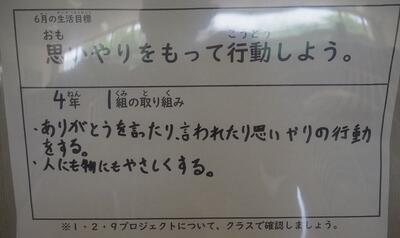 6月の生活目標
思いやりをもって行動しよう。
4年 1組の取り組み
・ありがとうを言ったり、言われたり思いやりの行動
をする。
・人にも物にもやさしくする。
※1・2・9プロジェクトについて、クラスで確認しましょう。